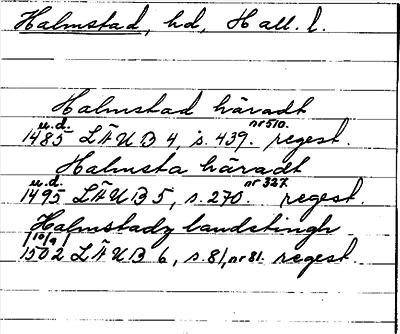 Halmstad, hd, Hall. l.
Halmstad häradt
u.d. nr 510.
1485 LÄUB 4, s. 439. regest.
Halmsta häradt
u.d. nr 327.
1495 LÄUB 5, s. 270. regest.
Halmstadz landstingh
10/9
1502 LÄUB 6, s. 81, nr 81. regest.